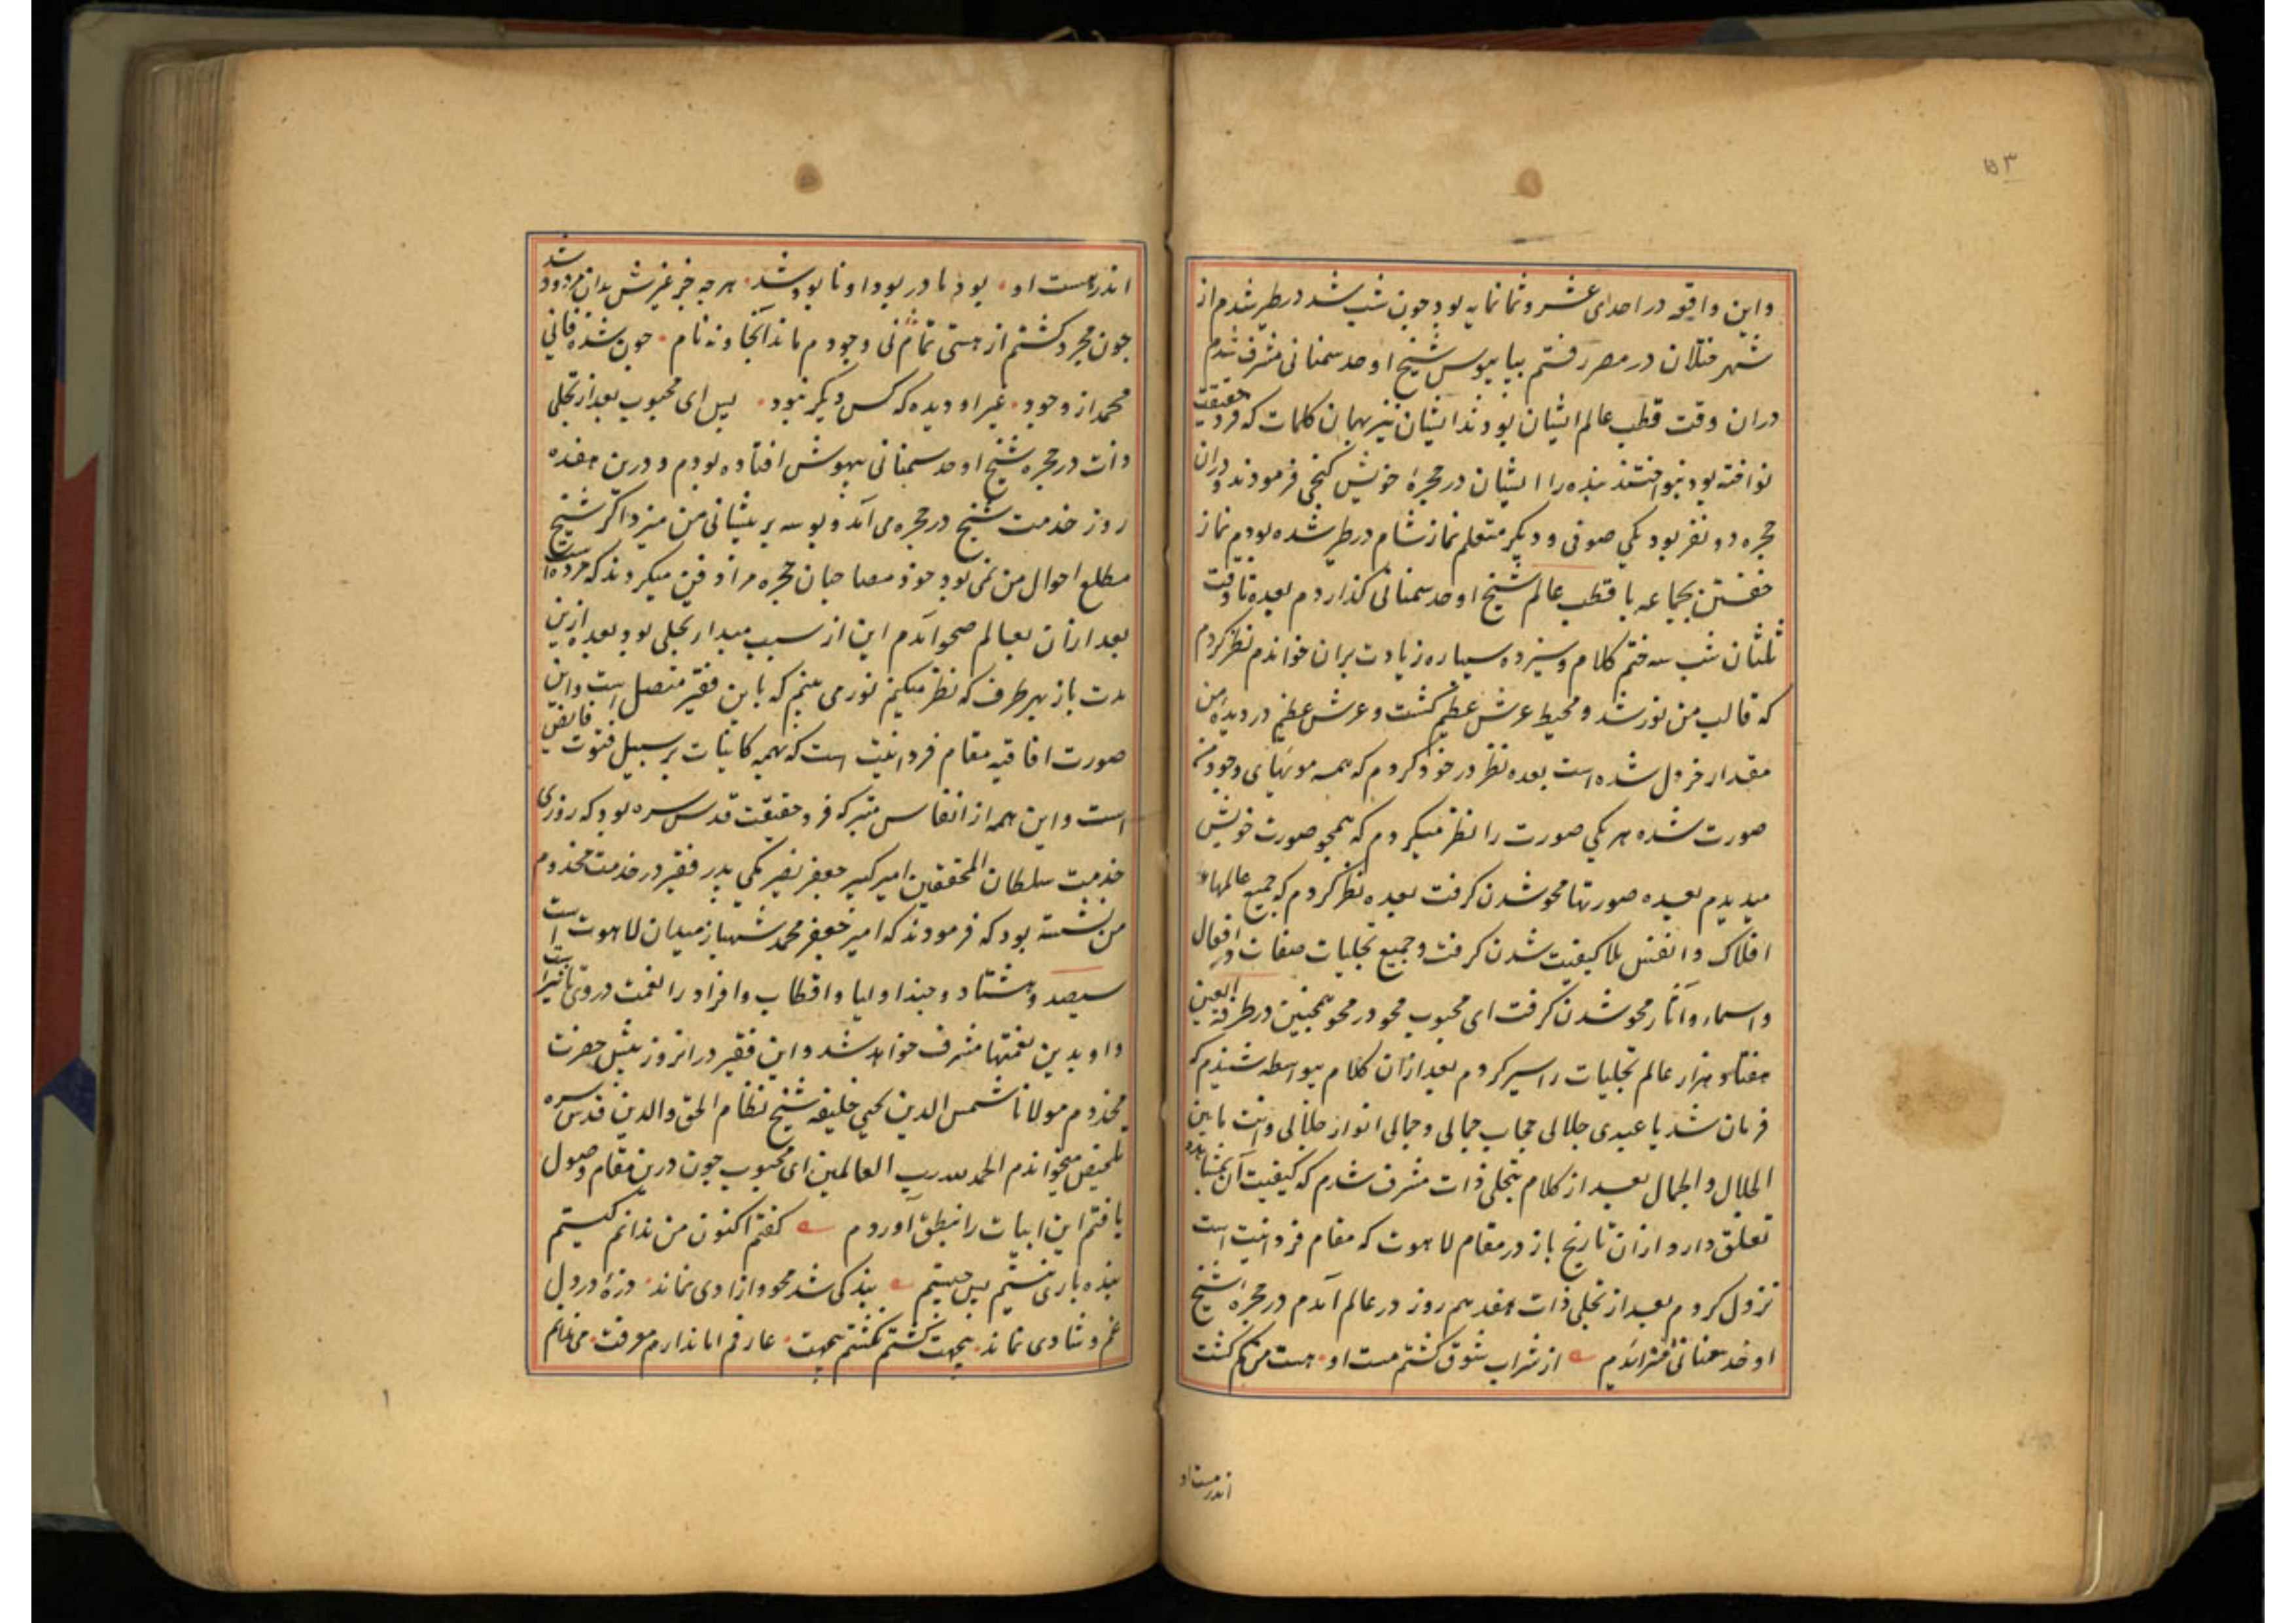 ۱۵۳
واین واقعه در احدای عشر و ثمانمایه بود چون شب شد در طیر شدم از
شهر ختلان در مصر رفتم بپابیوس شیخ اوحد سمنانی مشرف شدم
دران وقت قطب عالم ایشان بودند ایشان نیز بهمان کلمات که فرد حقیقت
نواخته بود بنواختند بنده را ایشان در حجرهٔ خویش کنجی فرمودند و دران
حجره دو نفر بود یکی صوفی و دیکر متعلم نماز شام در طیر شده بودیم نماز
خفتن بجماعه با قطب عالم شیخ اوحد سمنانی کذاردم بعده تا وقت
ثلثان شب سه ختم کلام و سیزده سیپاره زیادت بران خواندم نظر کردم
که قالب من نور شد و محیط عرش عظیم کشت و عرش عظیم در دیدهٔ من
مقدار خردل شده است بعده نظر در خود کردم که همه مویهای وجود من
صورت شده هر یکی صورت را نظر میکردم که همچو صورت خویش
میدیدم بعده صورتها محو شدن کرفت بعده نظر کردم که جمیع عالمهاء
افلاک و انفس بلا کیفیت شدن کرفت و جمیع تجلیات صفات و افعال
و اسماء و آثار محو شدن کرفت ای محبوب محو در محو همچنین در طرفة العین
هفتاد هزار عالم تجلیات را سیر کردم بعد ازان کلام بیواسطه شنیدم که
فرمان شد یا عبدی جلالی حجاب جمالی و جمالی انوار جلالی وانت مابین
الجلال والجمال بعد از کلام بتجلی ذات مشرف شدم که کیفیت آن بمشاهده
تعلق دارد ازان تاریخ باز در مقام لاهوت که مقام فردانیت است
نزول کردم بعد از تجلی ذات هفدهم روز در عالم آمدم در حجرهٔ شیخ
اوحد سمنانی از شراب شوق کشتم مست او هست من کم کشت
اندر هست او
اندر هست او بود ما در بود او نابود شد هر چه جز غیرش بدان مردود شد
چون مجرد کشتم از هستی تمام نی وجودم ماند آنجا و نه نام چون شده فانی
محمد از وجود غیر او دیده که کس دیکر نبود پس ای محبوب بعد از تجلی
ذات در حجره شیخ اوحد سمنانی بیهوش افتاده بودم و درین هفده
روز خدمت شیخ در حجره می آمد و بوسه بر پیشانی من میزد اکر شیخ
مطلع احوال من نمی بود خود مصاحبان حجره مرا دفن میکردند که مرده است
بعد ازان بعالم صحو آمدم این از سبب مبدار تجلی بود بعده ازین
مدت باز بهر طرف که نظر میکنم نور می بینم که باین فقیر متصل است واین
صورت افاقیه مقام فردانیت است که بهمه کاینات بر سبیل فتوت فایض
است واین همه از انفاس متبرکه فرد حقیقت قدس سره بود که روزی
خدمت سلطان المحققین امیر کبیر جعفر نصیر مکی پدر فقیر در خدمت مخدوم
من نشسته بود که فرمودند که امیر جعفر محمد شهباز میدان لاهوت است
سیصد و هشتاد و چند اولیا و اقطاب و افراد را نعمت در وی
و او بدین نعمتها مشرف خواهد شد واین فقیر در انروز پیش حضرت
مخدوم مولانا شمس الدین یحیی خلیفه شیخ نظام الحق والدین قدس سره
تلخیص میخواندم الحمد لله رب العالمین ای محبوب چون درین مقام وصول
یافتم این ابیات را بنطق آوردم کفتم اکنون من ندانم کیستم
بنده باری نیستم پس چیستم بندکی شد محو و ازادی نماند ذرهٔ در دل
غم و شادی نماند بیجهت کشتم نکشتم بیجهت عارفم اما ندارم معرفت می ندانم